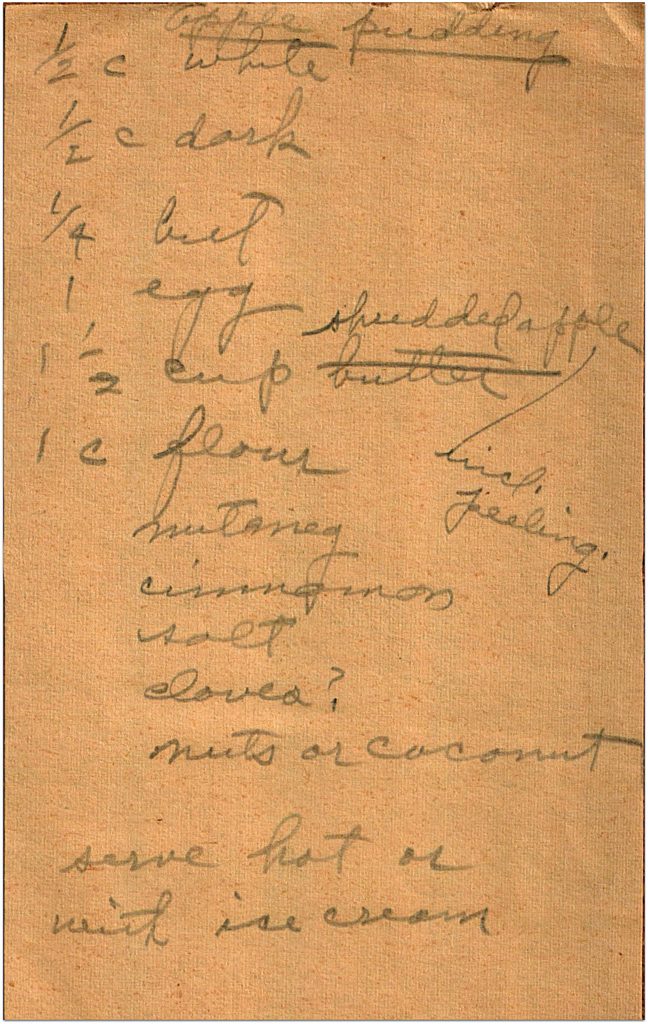 apple pudding
1/2 c white
1/2 c dark
1/4 but
1 egg
shredded apple
1 1/2 cup butter
1 c flour
incl.
peeling.
nutmeg
cinnamon
salt
cloves?
nuts or coconut
serve hot or
with ice cream